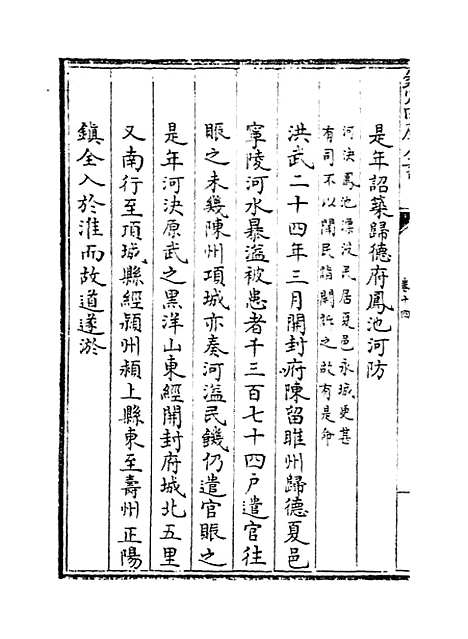 是年詔築歸德府鳳池河防
河決鳳池漂沒民居夏邑永城更甚
有司不以聞民詣闕訴之故有是命
洪武二十四年三月開封府陳留睢州歸德夏邑
寧陵河水暴溢被患者千三百七十四戶遣官往
賑之未幾陳州項城亦奏河溢民饑仍遣官賑之
是年河決原武之黑洋山東經開封府城北五里
又南行至項城縣經潁州潁上縣東至壽州正陽
鎮全入於淮而故道遂淤
卷十四